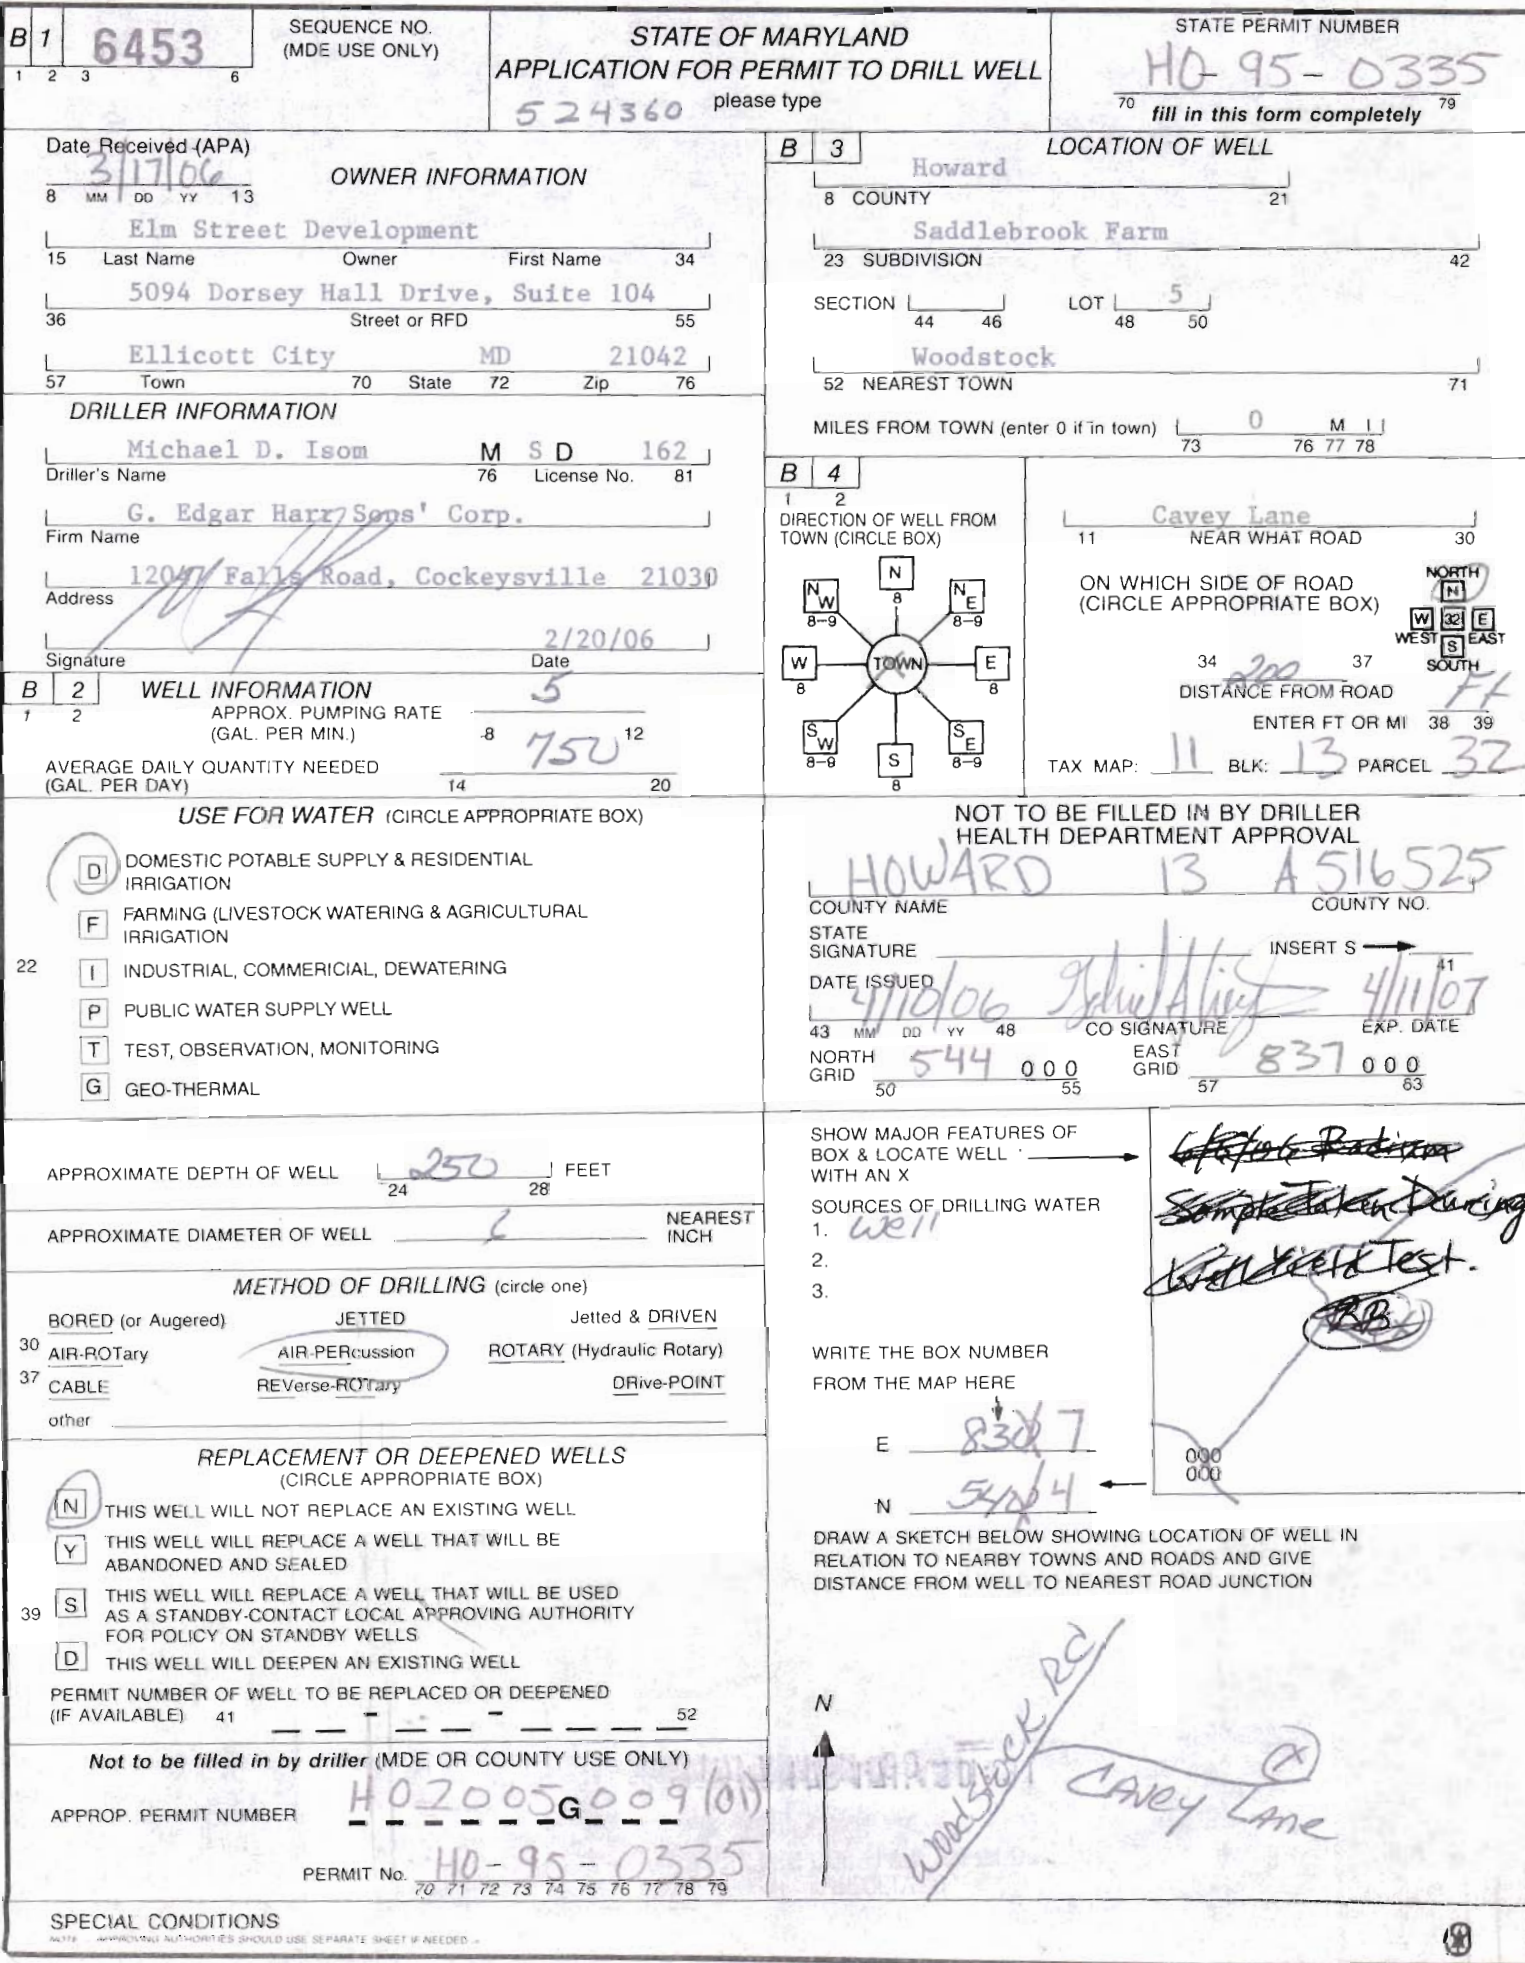 B 1 6453
1 2 3 6
SEQUENCE NO.
(MDE USE ONLY)
STATE OF MARYLAND
APPLICATION FOR PERMIT TO DRILL WELL
524360 please type
STATE PERMIT NUMBER
HO-95-0335
70 fill in this form completely 79
Date Received (APA)
3/17/06
8 MM DD YY 13
OWNER INFORMATION
Elm Street Development
15 Last Name Owner First Name 34
5094 Dorsey Hall Drive, Suite 104
36 Street or RFD 55
Ellicott City MD 21042
57 Town 70 State 72 Zip 76
DRILLER INFORMATION
Michael D. Isom M S D 162
Driller's Name 76 License No. 81
G. Edgar Harr Sons' Corp.
Firm Name
12047 Falls Road, Cockeysville 21030
Address
2/20/06
Signature Date
B 2 WELL INFORMATION
1 2
APPROX. PUMPING RATE 5
(GAL. PER MIN.) 8 12
AVERAGE DAILY QUANTITY NEEDED 750
(GAL. PER DAY) 14 20
USE FOR WATER (CIRCLE APPROPRIATE BOX)
D DOMESTIC POTABLE SUPPLY & RESIDENTIAL
IRRIGATION
F FARMING (LIVESTOCK WATERING & AGRICULTURAL
IRRIGATION
22 I INDUSTRIAL, COMMERICIAL, DEWATERING
P PUBLIC WATER SUPPLY WELL
T TEST, OBSERVATION, MONITORING
G GEO-THERMAL
APPROXIMATE DEPTH OF WELL 250 FEET
24 28
APPROXIMATE DIAMETER OF WELL 6 NEAREST
INCH
METHOD OF DRILLING (circle one)
BORED (or Augered) JETTED Jetted & DRIVEN
30 AIR-ROTary AIR-PERcussion ROTARY (Hydraulic Rotary)
37 CABLE REVerse-ROTary DRive-POINT
other
REPLACEMENT OR DEEPENED WELLS
(CIRCLE APPROPRIATE BOX)
N THIS WELL WILL NOT REPLACE AN EXISTING WELL
Y THIS WELL WILL REPLACE A WELL THAT WILL BE
ABANDONED AND SEALED
39 S THIS WELL WILL REPLACE A WELL THAT WILL BE USED
AS A STANDBY-CONTACT LOCAL APPROVING AUTHORITY
FOR POLICY ON STANDBY WELLS
D THIS WELL WILL DEEPEN AN EXISTING WELL
PERMIT NUMBER OF WELL TO BE REPLACED OR DEEPENED
(IF AVAILABLE) 41 - - 52
Not to be filled in by driller (MDE OR COUNTY USE ONLY)
APPROP. PERMIT NUMBER HO2005G009(01)
PERMIT No. HO-95-0335
70 71 72 73 74 75 76 77 78 79
SPECIAL CONDITIONS
NOTE - APPROVING AUTHORITIES SHOULD USE SEPARATE SHEET IF NEEDED -
B 3 LOCATION OF WELL
Howard
8 COUNTY 21
Saddlebrook Farm
23 SUBDIVISION 42
SECTION LOT 5
44 46 48 50
Woodstock
52 NEAREST TOWN 71
MILES FROM TOWN (enter 0 if in town) 0 M I
73 76 77 78
B 4
1 2
DIRECTION OF WELL FROM
TOWN (CIRCLE BOX)
N
8
NW
8-9
NE
8-9
W
8
TOWN
E
8
SW
8-9
SE
8-9
S
8
Cavey Lane
11 NEAR WHAT ROAD 30
ON WHICH SIDE OF ROAD
(CIRCLE APPROPRIATE BOX)
NORTH
N
W 32 E
WEST S EAST
SOUTH
34 200 37
DISTANCE FROM ROAD Ft
ENTER FT OR MI 38 39
TAX MAP: 11 BLK: 13 PARCEL 32
NOT TO BE FILLED IN BY DRILLER
HEALTH DEPARTMENT APPROVAL
HOWARD 13 A516525
COUNTY NAME COUNTY NO.
STATE
SIGNATURE INSERT S
41
DATE ISSUED
4/10/06 4/11/07
43 MM DD YY 48 CO SIGNATURE EXP. DATE
NORTH
GRID 544 000
50 55
EAST
GRID 837 000
57 63
SHOW MAJOR FEATURES OF
BOX & LOCATE WELL
WITH AN X
SOURCES OF DRILLING WATER
1. Well
2.
3.
6/6/06 Radium
Sample Taken During
Well Yield Test.
RB
WRITE THE BOX NUMBER
FROM THE MAP HERE
E 830 7
N 540 4
000
000
DRAW A SKETCH BELOW SHOWING LOCATION OF WELL IN
RELATION TO NEARBY TOWNS AND ROADS AND GIVE
DISTANCE FROM WELL TO NEAREST ROAD JUNCTION
N
WOODSTOCK RD
X
CAVEY LANE